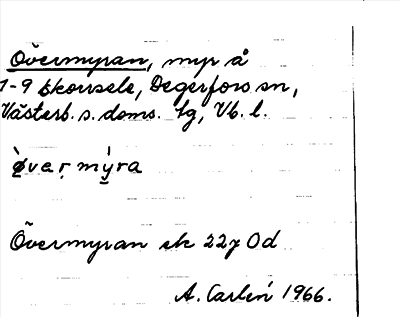 Övermyran, myr å
1-9 Ekorrsele, Degerfors sn,
Västerb. s. doms. tg, Vb. l.
ø̀veṛmýra
Övermyran ek 22J 0d
A. Carlén 1966.